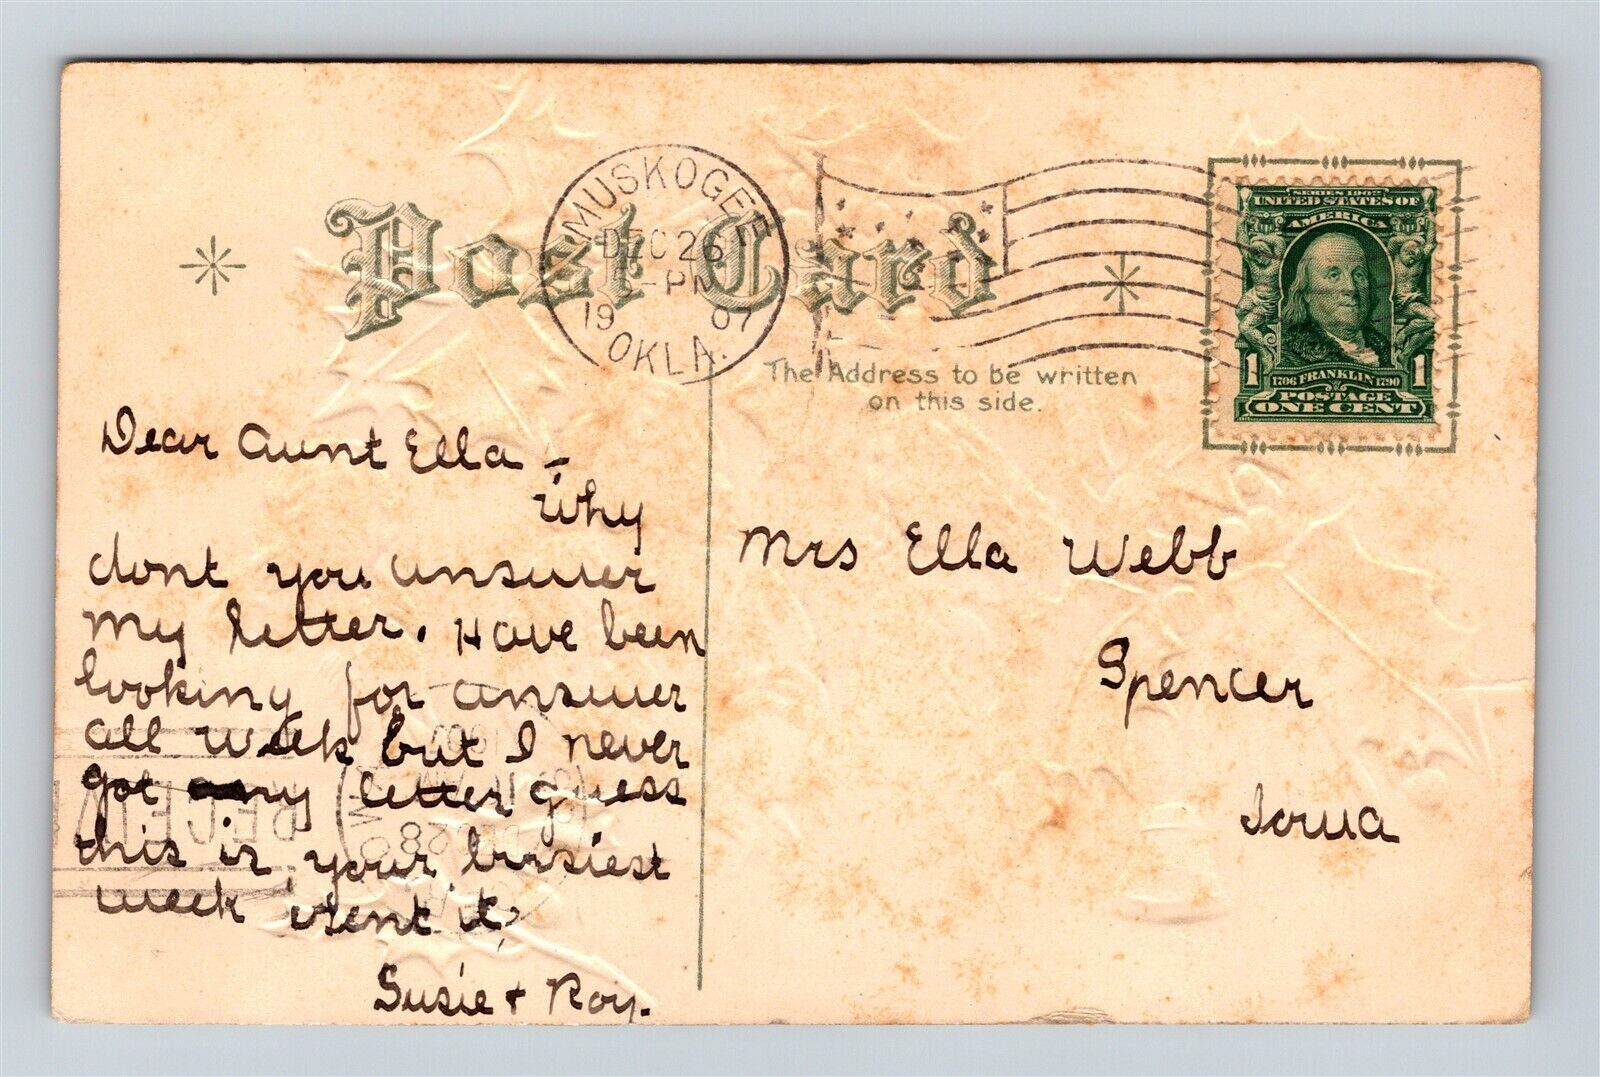 Post Card
MUSKOGEE
DEC 26
-PM
19 07
OKLA.
The Address to be written
on this side.
SERIES 1902
UNITED STATES OF
AMERICA
1 1
1706 FRANKLIN 1790
POSTAGE
ONE CENT
Dear Aunt Ella -
Why
dont you answer
my letter. Have been
looking for answer
all week but I never
got any letter guess
this is your busiest
week isent it?
Susie + Roy.
Mrs Ella Webb
Spencer
Iowa
RECEIVED
DEC 28